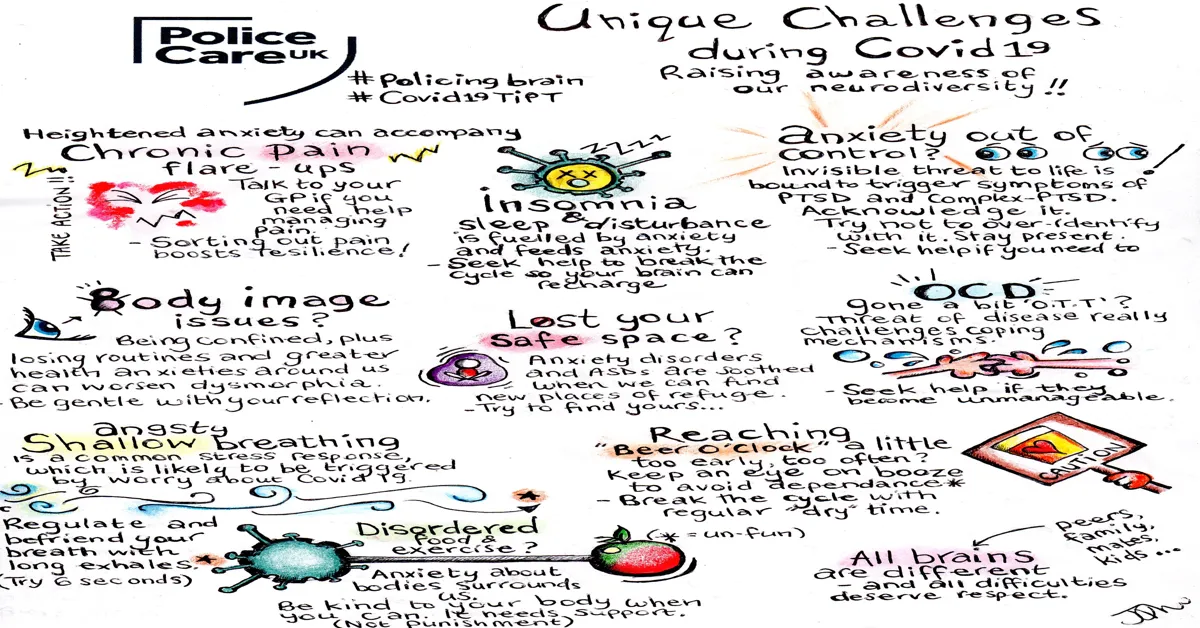 Police
Care UK
# Policing brain
# Covid19 TiPT
Unique Challenges
during Covid19
Raising awareness of
our neurodiversity !!
Heightened anxiety can accompany
Chronic Pain
flare-ups
TAKE ACTION!!
Talk to your
GP if you
need help
managing
pain.
- Sorting out pain
boosts resilience!
zzzz
Insomnia
&
sleep disturbance
is fuelled by anxiety
and feeds anxiety.
- Seek help to break the
cycle so your brain can
recharge
anxiety out of
control?
Invisible threat to life is
bound to trigger symptoms of
PTSD and Complex-PTSD.
Acknowledge it.
Try not to over-identify
with it. Stay present.
- Seek help if you need to
Body image
issues?
Being confined, plus
losing routines and greater
health anxieties around us
can worsen dysmorphia.
- Be gentle with your reflection.
Lost your
Safe space?
Anxiety disorders
and ASDs are soothed
when we can find
new places of refuge.
- Try to find yours...
OCD
gone a bit 'O.T.T'?
Threat of disease really
challenges coping
mechanisms.
- Seek help if they
become unmanageable.
angsty
Shallow breathing
is a common stress response,
which is likely to be triggered
by worry about Covid 19.
Regulate and
befriend your
breath with
long exhales. *
(Try 6 seconds)
*
Disordered
food &
exercise?
Anxiety about
bodies surrounds
us.
Be kind to your body when
you can. It needs support.
(Not punishment)
Reaching
"Beer O'Clock" a little
too early, too often?
Keep an eye on booze
to avoid dependance*
- Break the cycle with
regular "dry" time.
(* = un-fun)
CAUTION
peers,
family,
mates,
kids...
All brains
are different
- and all difficulties
deserve respect.